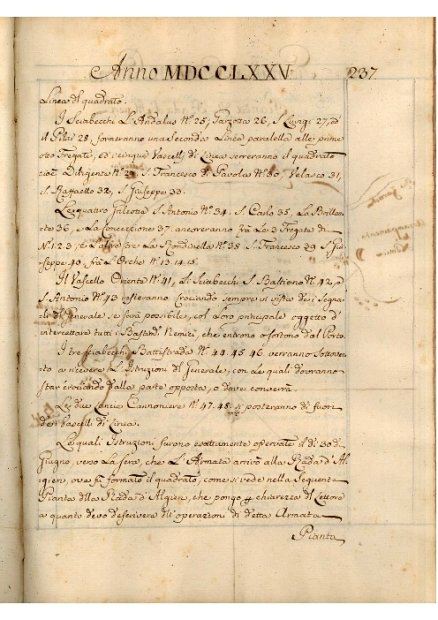 Anno MDCCLXXV. 237
Linea del quadrato.
I Sciabecchi L'Andaluz N.º 25, Garzota 26, S. Luigi 27, ed
il Pilar 28, formeranno una seconda Linea paralella alle prime
otto Fregate, ed i cinque Vascelli di Linea serreranno il quadrato
cioè Diligente N.º 29 S. Francesco di Paola N.º 30, Velasco 31,
S. Raffaello 32, S. Giuseppe 33.
Le quattro S. Antonio N.º 34. S. Carlo 35, La Brillan-
te 36, e la Concezione 37, anceranno frà Le 3 Fregate di
N.º 1 2 3, e La Rondinella N.º 38 S. Francesco 39 S. Giu-
seppe 40. frà L'Orche N.º 13. 14. 15.
Il Vascello Oriente N.º 41, di Sciabecchi S. Bastiano N.º 42, e
S. Antonio N.º 43 resteranno Crociando sempre à vista dei Segna-
li del Generale, se sarà possibile, col Loro principale oggetto d'
intercettare tutti i Bastim.ti Nemici, che entrono o sortono dal Porto.
I tre Sciabecchi Battistrada N.º 44. 45 46. verranno Sottoven-
to a ricevere L'Istruzioni del Generale, con le quali dovranno
star dalla parte opposta, o dove converrà.
Le due Lancie Cannoniere N.º 47. 48. si posteranno di fuori
dei Vascelli di Linea.
Le quali Istruzioni furono esattamente osservate il dì 30 di
Giugno, verso La sera, che L'Armata arrivò alla Rada d'Al-
gieri, ove si formato il quadrato, come si vede nella Seguente
Pianta della Rada d'Algieri, che pongo p chiarezza del Lettore
a quanto devo descrivere dell'operazioni di detta Armata
Pianta